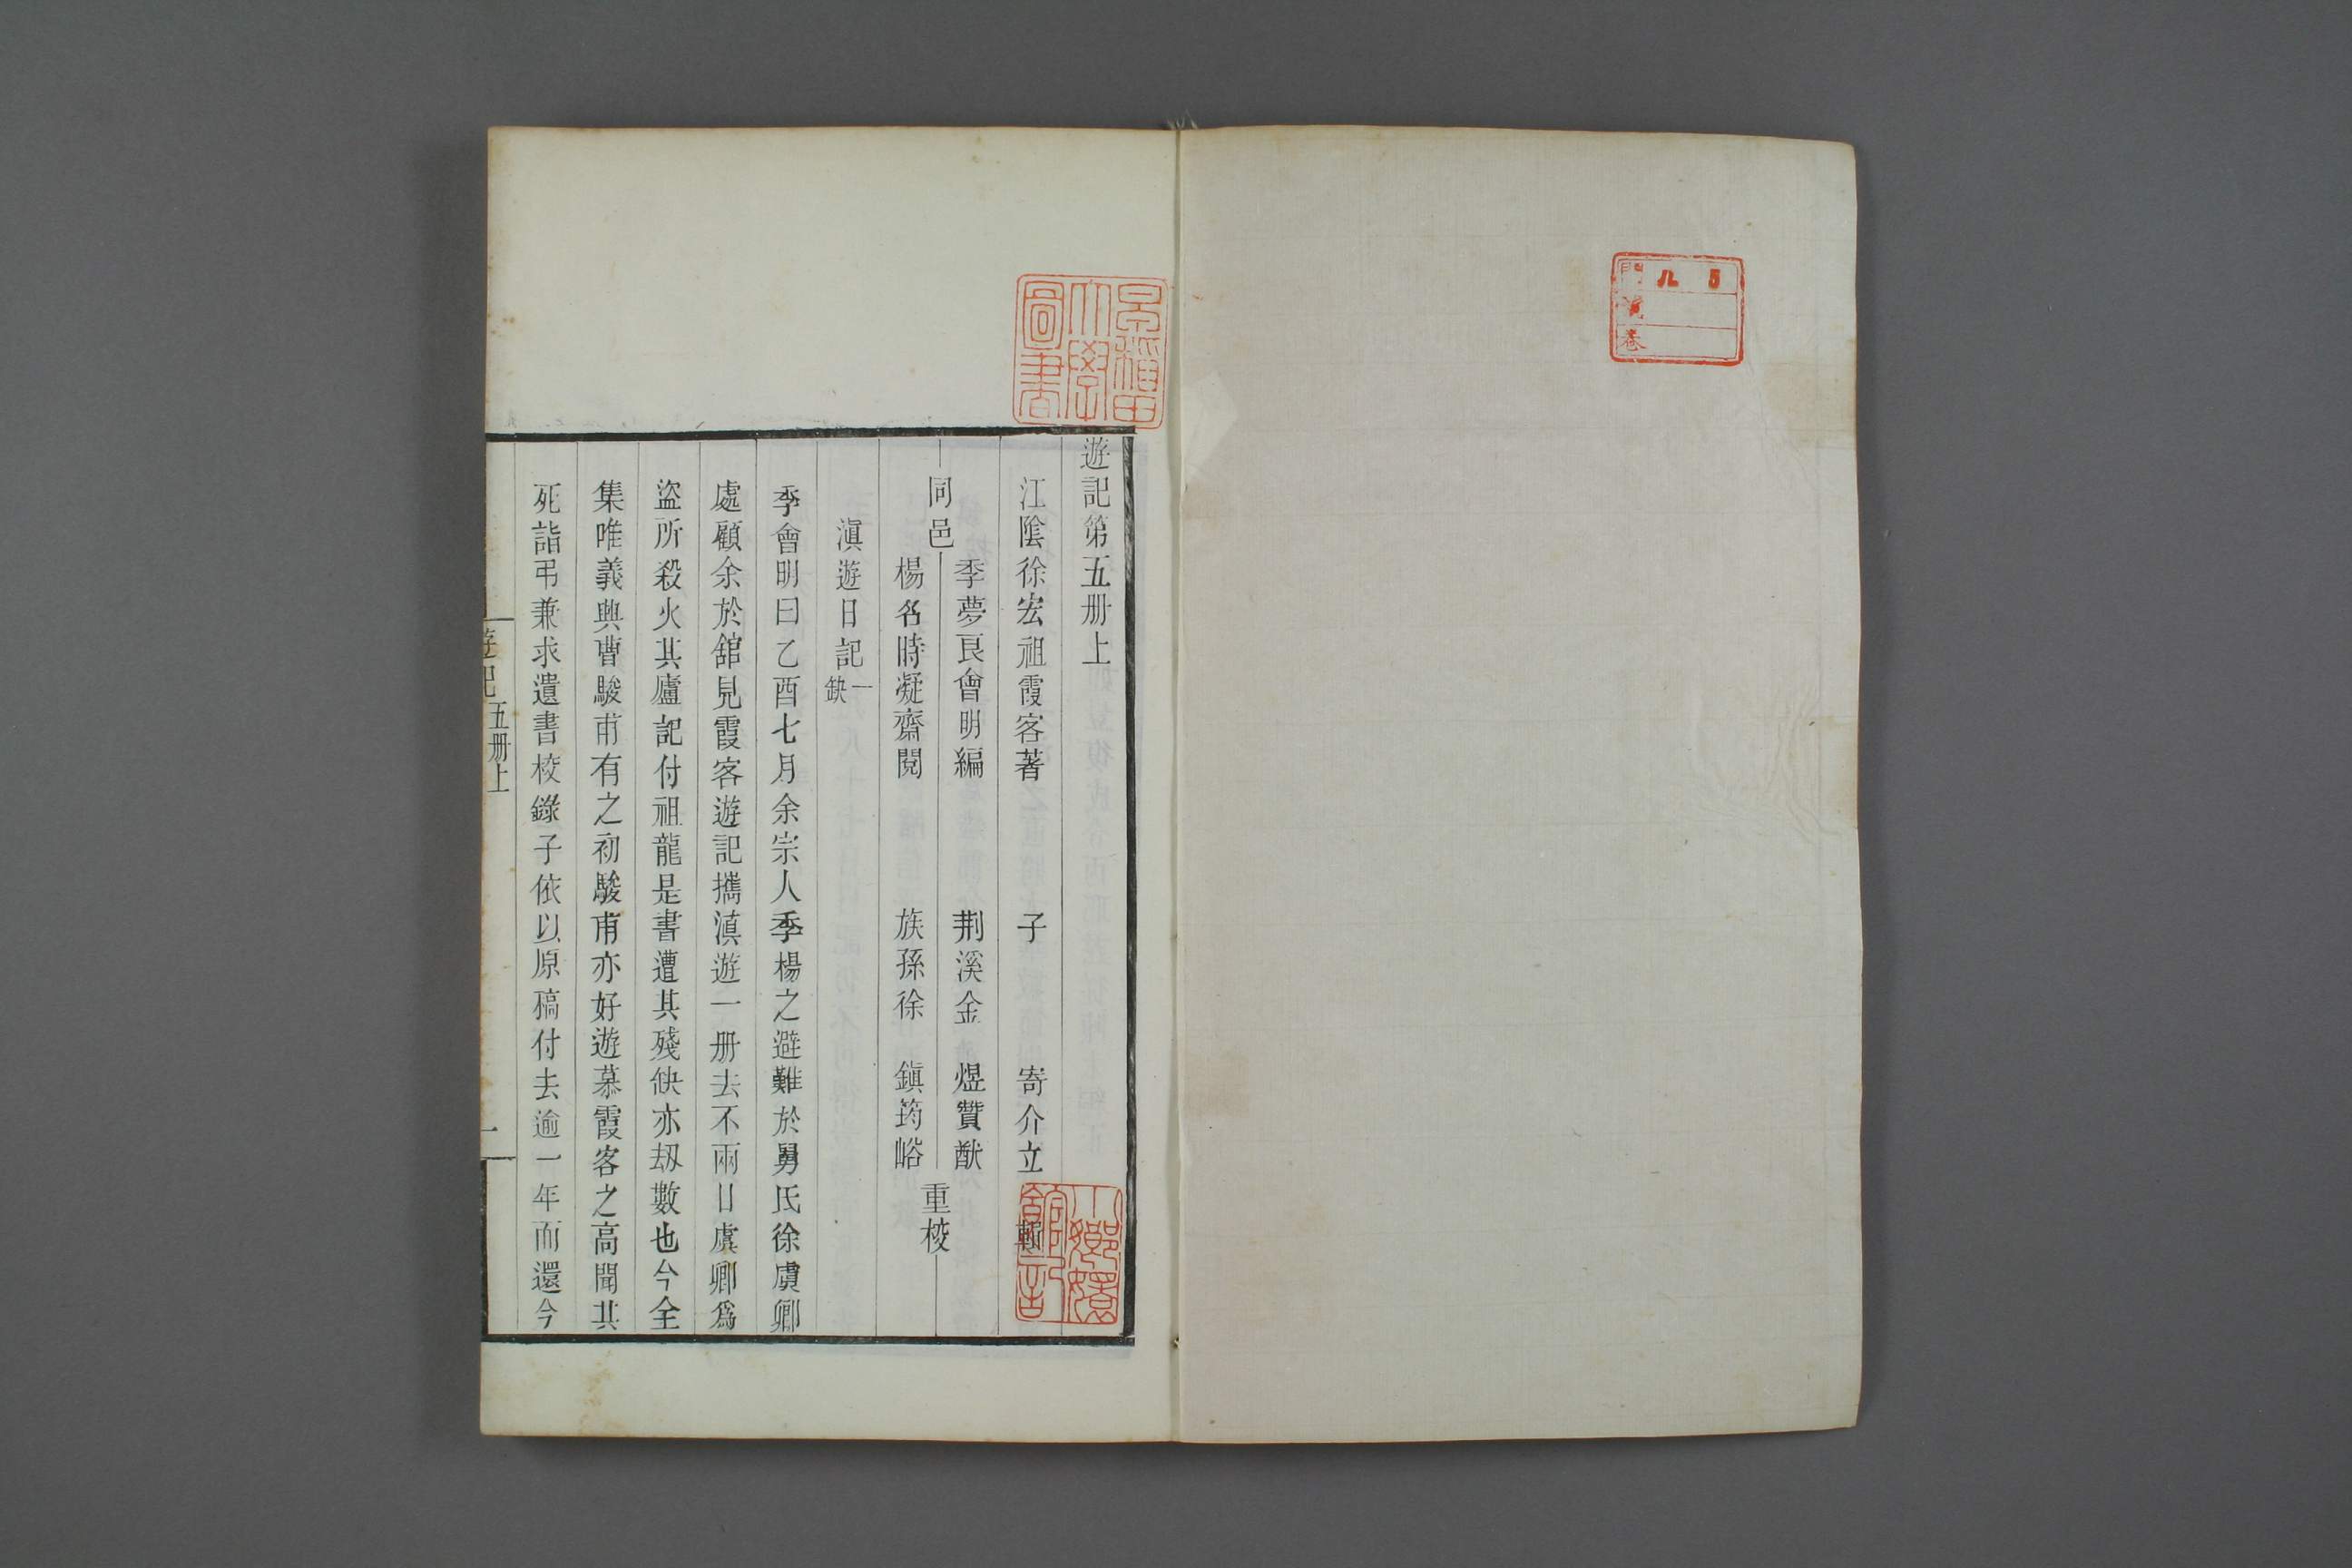 門 八 5
號
卷
早稲田大學圖書
遊記第五册上
江陰徐宏祖霞客著 子 寄介立輯
同邑
季夢良會明編 荆溪金 焜贊猷
楊名時凝齋閱 族孫徐 鎭筠峪
重校
滇遊日記一缺
季會明曰乙酉七月余宗人季楊之避難於舅氏徐虞卿
處顧余於舘見霞客遊記攜滇遊一册去不兩日虞卿爲
盜所殺火其廬記付祖龍是書遭其殘缺亦刼數也今全
集唯義興曹駿甫有之初駿甫亦好遊慕霞客之高聞其
死詣弔兼求遺書校錄子依以原稿付去逾一年而還今
遊記 五册上 一